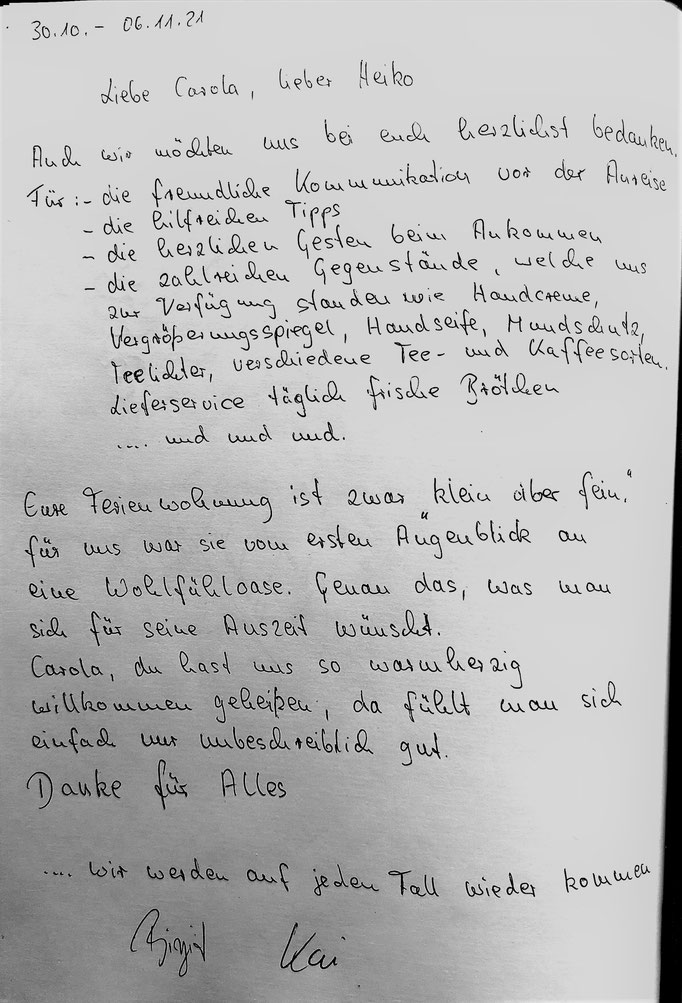 30.10. - 06.11.21
Liebe Carola, lieber Heiko
Auch wir möchten uns bei euch herzlichst bedanken.
Für: - die freundliche Kommunikation vor der Anreise
- die hilfreichen Tipps
- die herzlichen Gesten beim Ankommen
- die zahlreichen Gegenstände, welche uns
zur Verfügung standen wie Handcreme,
Vergrößerungsspiegel, Handseife, Mundschutz,
Teelichter, verschiedene Tee- und Kaffeesorten.
Lieferservice täglich frische Brötchen
.... und und und.
Eure Ferienwohnung ist zwar „klein aber fein."
für uns war sie vom ersten Augenblick an
eine Wohlfühloase. Genau das, was man
sich für seine Auszeit wünscht.
Carola, du hast uns so warmherzig
willkommen geheißen, da fühlt man sich
einfach nur unbeschreiblich gut.
Danke für Alles
.... wir werden auf jeden Fall wieder kommen
Birgit Kai